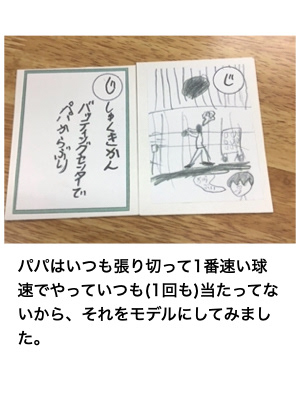 じ
じしゃくきかん
バッティングセンターで
パパからぶり
じ
パパはいつも張り切って1番速い球
速でやっていつも(1回も)当たってな
いから、それをモデルにしてみまし
た。